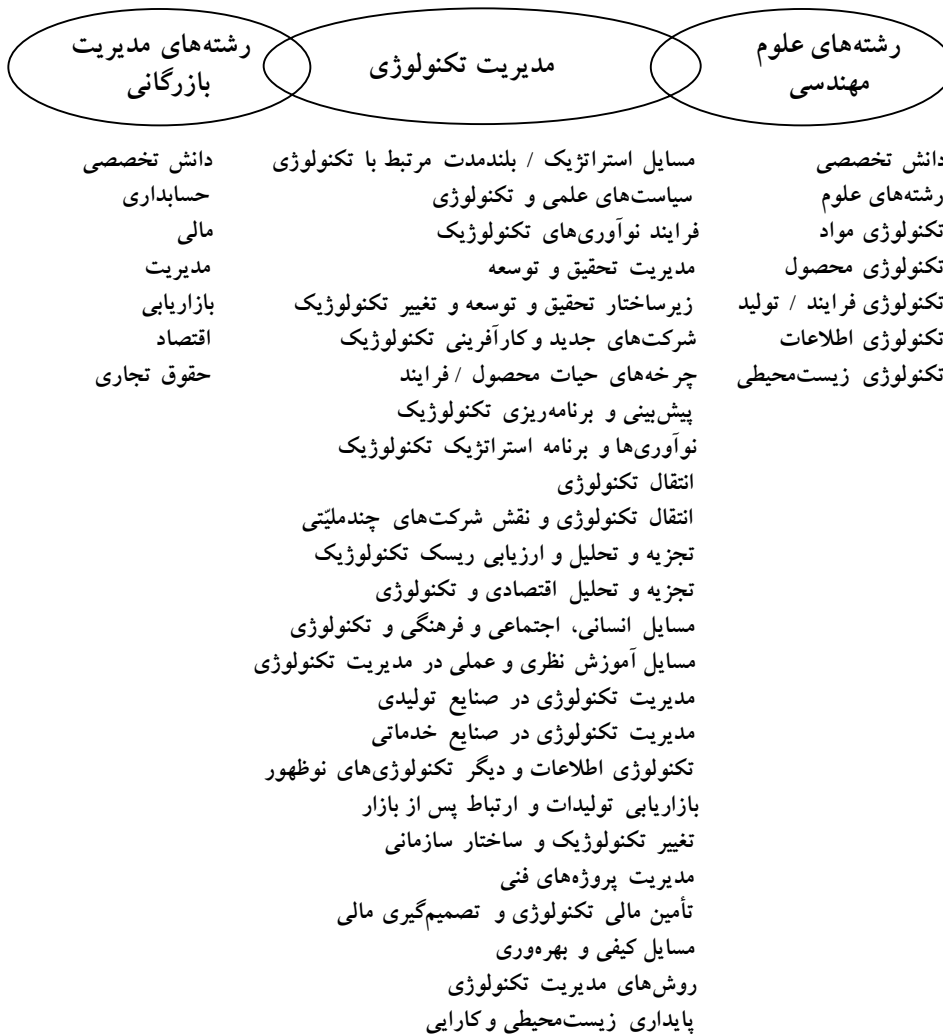 رشته‌های علوم
مهندسی
مدیریت تکنولوژی
رشته‌های مدیریت
بازرگانی
دانش تخصصی
رشته‌های علوم
تکنولوژی مواد
تکنولوژی محصول
تکنولوژی فرایند / تولید
تکنولوژی اطلاعات
تکنولوژی زیست‌محیطی
مسایل استراتژیک / بلندمدت مرتبط با تکنولوژی
سیاست‌های علمی و تکنولوژی
فرایند نوآوری‌های تکنولوژیک
مدیریت تحقیق و توسعه
زیرساختار تحقیق و توسعه و تغییر تکنولوژیک
شرکت‌های جدید و کارآفرینی تکنولوژیک
چرخه‌های حیات محصول / فرایند
پیش‌بینی و برنامه‌ریزی تکنولوژیک
نوآوری‌ها و برنامه استراتژیک تکنولوژیک
انتقال تکنولوژی
انتقال تکنولوژی و نقش شرکت‌های چندملیّتی
تجزیه و تحلیل و ارزیابی ریسک تکنولوژیک
تجزیه و تحلیل اقتصادی و تکنولوژی
مسایل انسانی، اجتماعی و فرهنگی و تکنولوژی
مسایل آموزش نظری و عملی در مدیریت تکنولوژی
مدیریت تکنولوژی در صنایع تولیدی
مدیریت تکنولوژی در صنایع خدماتی
تکنولوژی اطلاعات و دیگر تکنولوژی‌های نوظهور
بازاریابی تولیدات و ارتباط پس از بازار
تغییر تکنولوژیک و ساختار سازمانی
مدیریت پروژه‌های فنی
تأمین مالی تکنولوژی و تصمیم‌گیری مالی
مسایل کیفی و بهره‌وری
روش‌های مدیریت تکنولوژی
پایداری زیست‌محیطی و کارایی
دانش تخصصی
حسابداری
مالی
مدیریت
بازاریابی
اقتصاد
حقوق تجاری